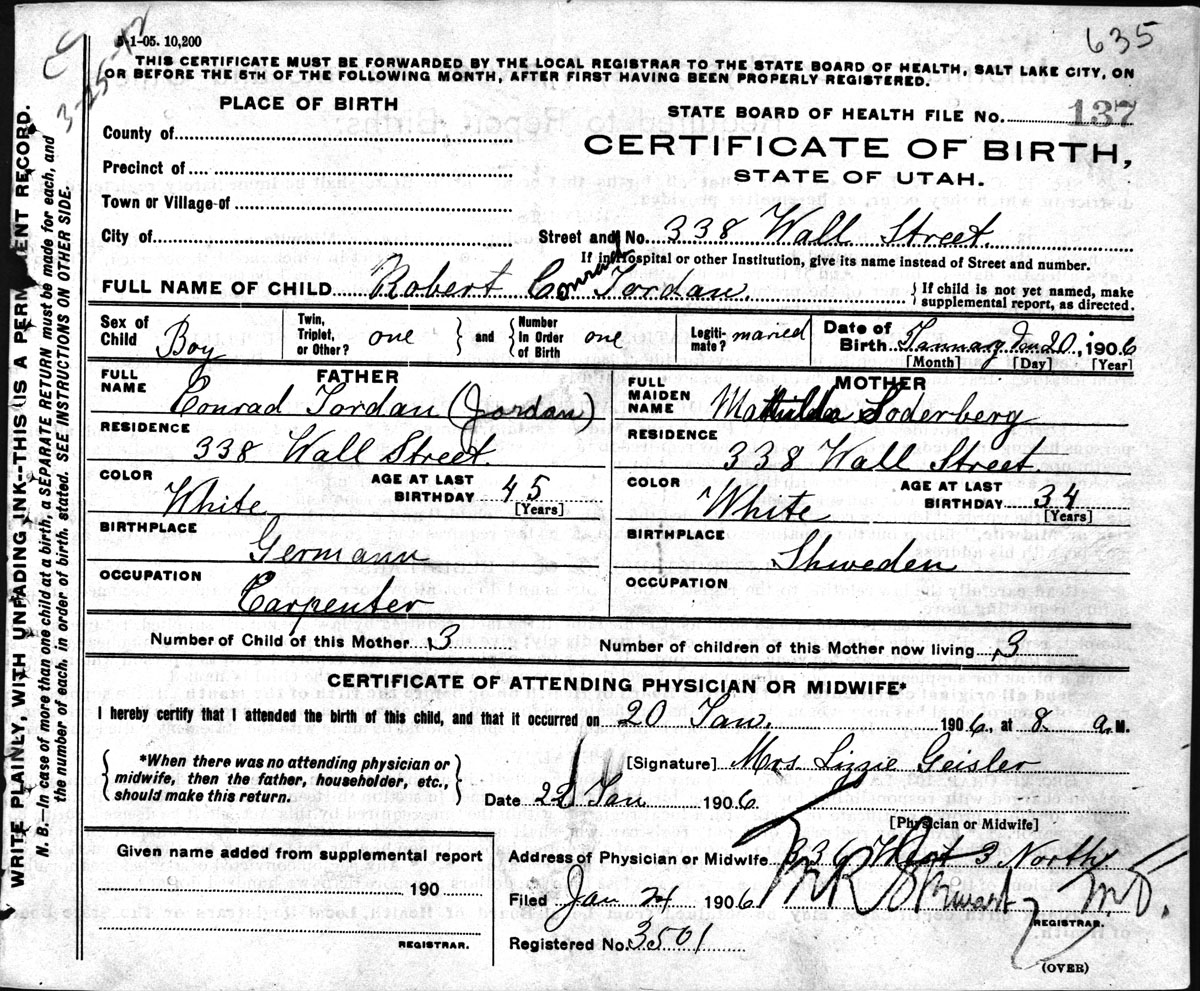 635
5-1-05. 10,200
3-25-12
THIS CERTIFICATE MUST BE FORWARDED BY THE LOCAL REGISTRAR TO THE STATE BOARD OF HEALTH, SALT LAKE CITY, ON
OR BEFORE THE 5TH OF THE FOLLOWING MONTH, AFTER FIRST HAVING BEEN PROPERLY REGISTERED.
WRITE PLAINLY, WITH UNFADING INK--THIS IS A PERMANENT RECORD.
N. B. In case of more than one child at a birth, a SEPARATE RETURN must be made for each, and
the number of each, in order of birth, stated. SEE INSTRUCTIONS ON OTHER SIDE.
PLACE OF BIRTH
County of
Precinct of
Town or Village of
City of
STATE BOARD OF HEALTH FILE No. 137
CERTIFICATE OF BIRTH,
STATE OF UTAH.
Street and No. 338 Wall Street.
If in Hospital or other Institution, give its name instead of Street and number.
FULL NAME OF CHILD Robert Conrad Jordan. If child is not yet named, make supplemental report, as directed.
Sex of Child Boy Twin, Triplet, or Other? one and Number in Order of Birth one Legitimate? maried Date of Birth January den 20, 1906
[Month] [Day] [Year]
FATHER
FULL NAME Conrad Jordan (Jordan)
RESIDENCE 338 Wall Street.
COLOR White AGE AT LAST BIRTHDAY 45 [Years]
BIRTHPLACE Germann
OCCUPATION Carpenter
MOTHER
FULL MAIDEN NAME Mathilda Soderberg
RESIDENCE 338 Wall Street
COLOR White AGE AT LAST BIRTHDAY 34 [Years]
BIRTHPLACE Shweden
OCCUPATION
Number of Child of this Mother 3 Number of children of this Mother now living 3
CERTIFICATE OF ATTENDING PHYSICIAN OR MIDWIFE*
I hereby certify that I attended the birth of this child, and that it occurred on 20 Jan. 1906, at 8 a. M.
*When there was no attending physician or
midwife, then the father, householder, etc.,
should make this return.
[Signature] Mrs Lizzie Geisler
Date 22 Jan 1906.
[Physician or Midwife]
Given name added from supplemental report
190
REGISTRAR.
Address of Physician or Midwife 336 West 3 North
Filed Jan 24 1906 M.D.
REGISTRAR.
Registered No. 3501
(OVER)